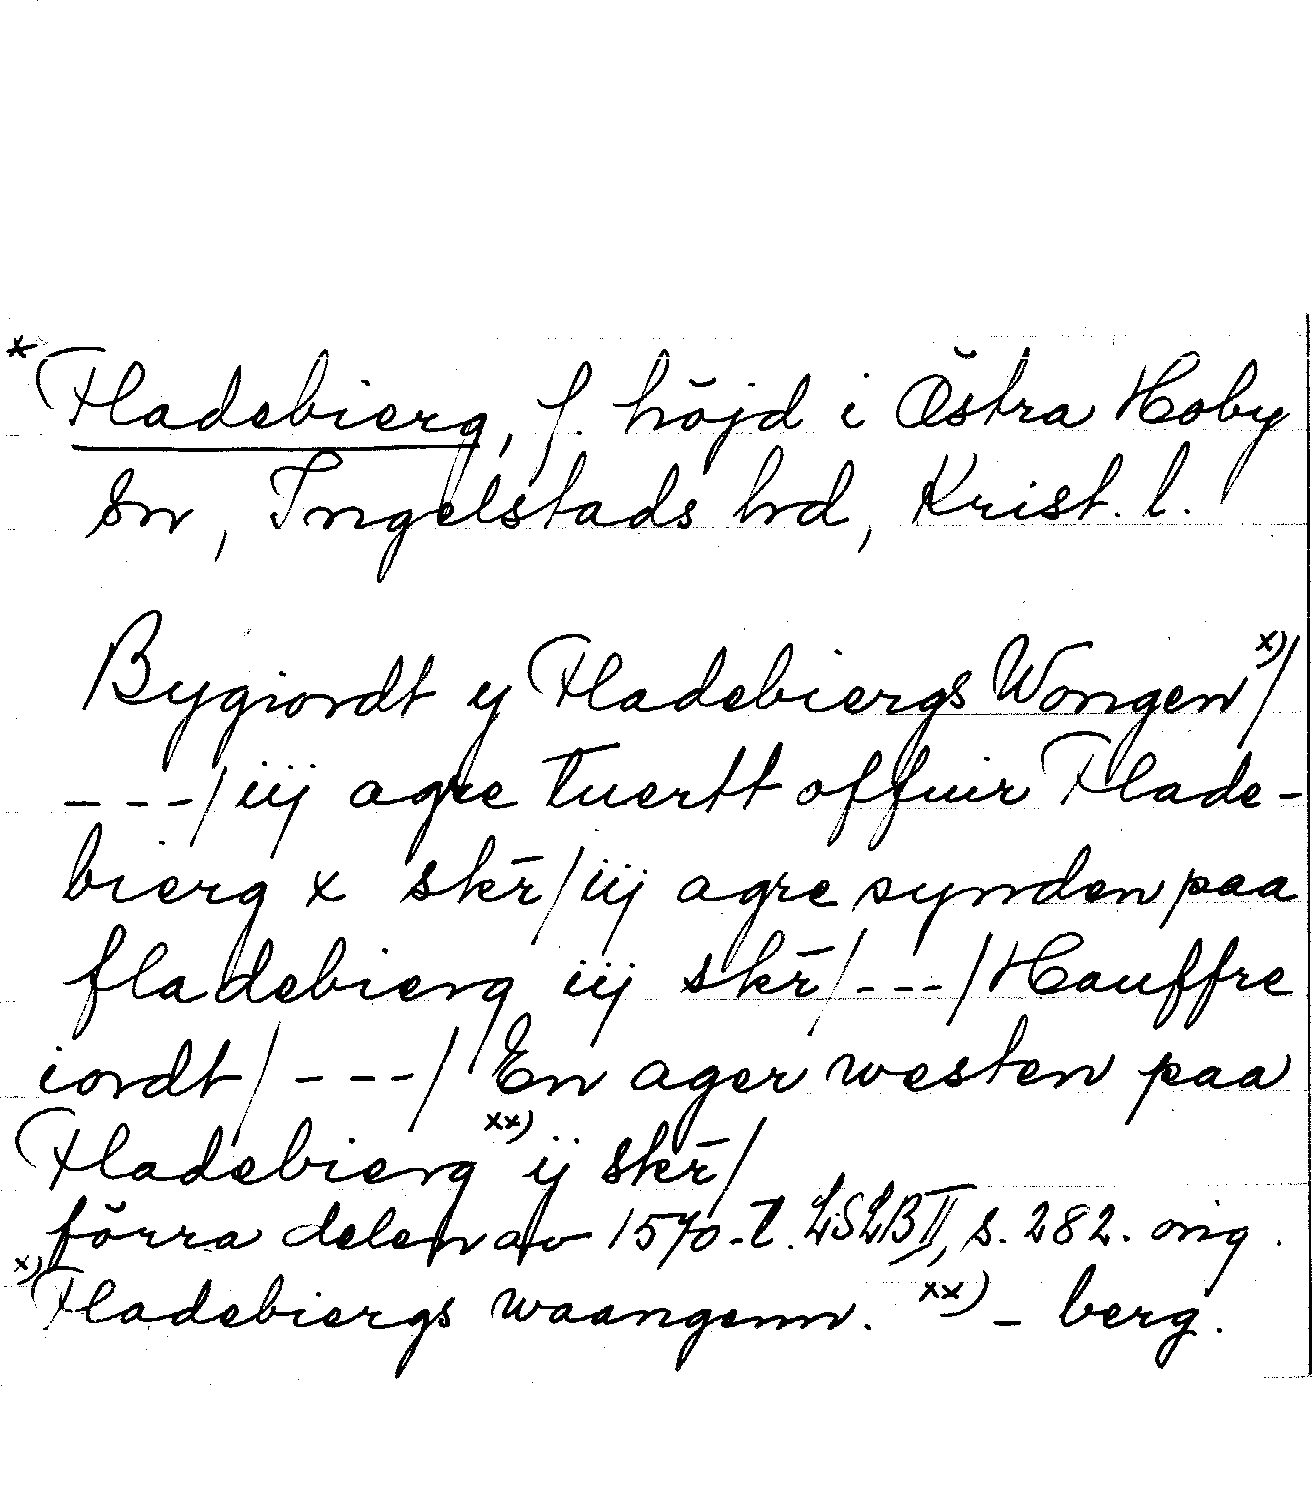 * Fladebierg, f. höjd i Östra Hoby
Sn, Ingelstads hrd, Krist. l.
Bygiordt y Fladebiergs Wongen x)/
---/iij agre tuertt offuir Flade-
bierg x skr̄/iij agre synden paa
fladebierg iij skr̄/---/Hauffre
iordt/---/ En ager westen paa
Fladebierg xx) ij skr̄/
förra delen av 1570-t. LSLB II, s. 282. orig.
x) Fladebiergs waangenn. xx) - berg.